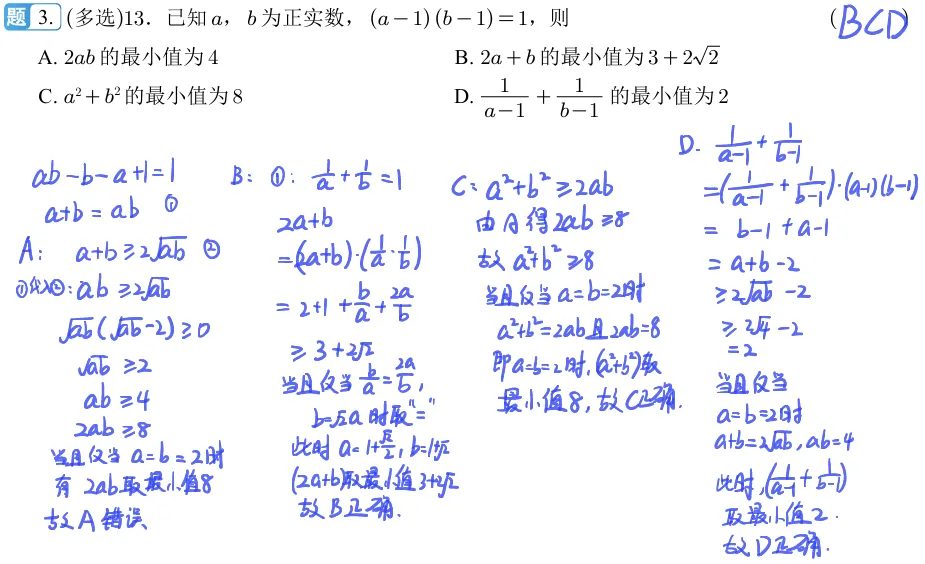 题 3. (多选)13. 已知 a, b 为正实数, (a-1)(b-1)=1, 则 ( BCD )
A. 2ab 的最小值为 4
B. 2a+b 的最小值为 3+2√2
C. a²+b² 的最小值为 8
D. 1/(a-1) + 1/(b-1) 的最小值为 2
ab-b-a+1=1
a+b=ab ①
A: a+b≥2√ab ②
①代入②: ab≥2√ab
√ab(√ab-2)≥0
√ab≥2
ab≥4
2ab≥8
当且仅当 a=b=2时
有 2ab取最小值8
故A错误
B: ①: 1/a+1/b=1
2a+b
=(2a+b)·(1/a·1/b)
=2+1+b/a+2a/b
≥3+2√2
当且仅当 b/a=2a/b,
b=√2a 时取"="
此时 a=1+√2/2, b=1+√2
(2a+b)取最小值3+2√2
故B正确.
C: a²+b²≥2ab
由A得2ab≥8
故a²+b²≥8
当且仅当a=b=2时
a²+b²=2ab且2ab=8
即a=b=2时,(a²+b²)取
最小值8,故C正确.
D. 1/(a-1)+1/(b-1)
=(1/(a-1)+1/(b-1))·(a-1)(b-1)
=b-1+a-1
=a+b-2
≥2√ab-2
≥2√4-2
=2
当且仅当
a=b=2时
a+b=2√ab,ab=4
此时,(1/(a-1)+1/(b-1))
取最小值2.
故D正确.